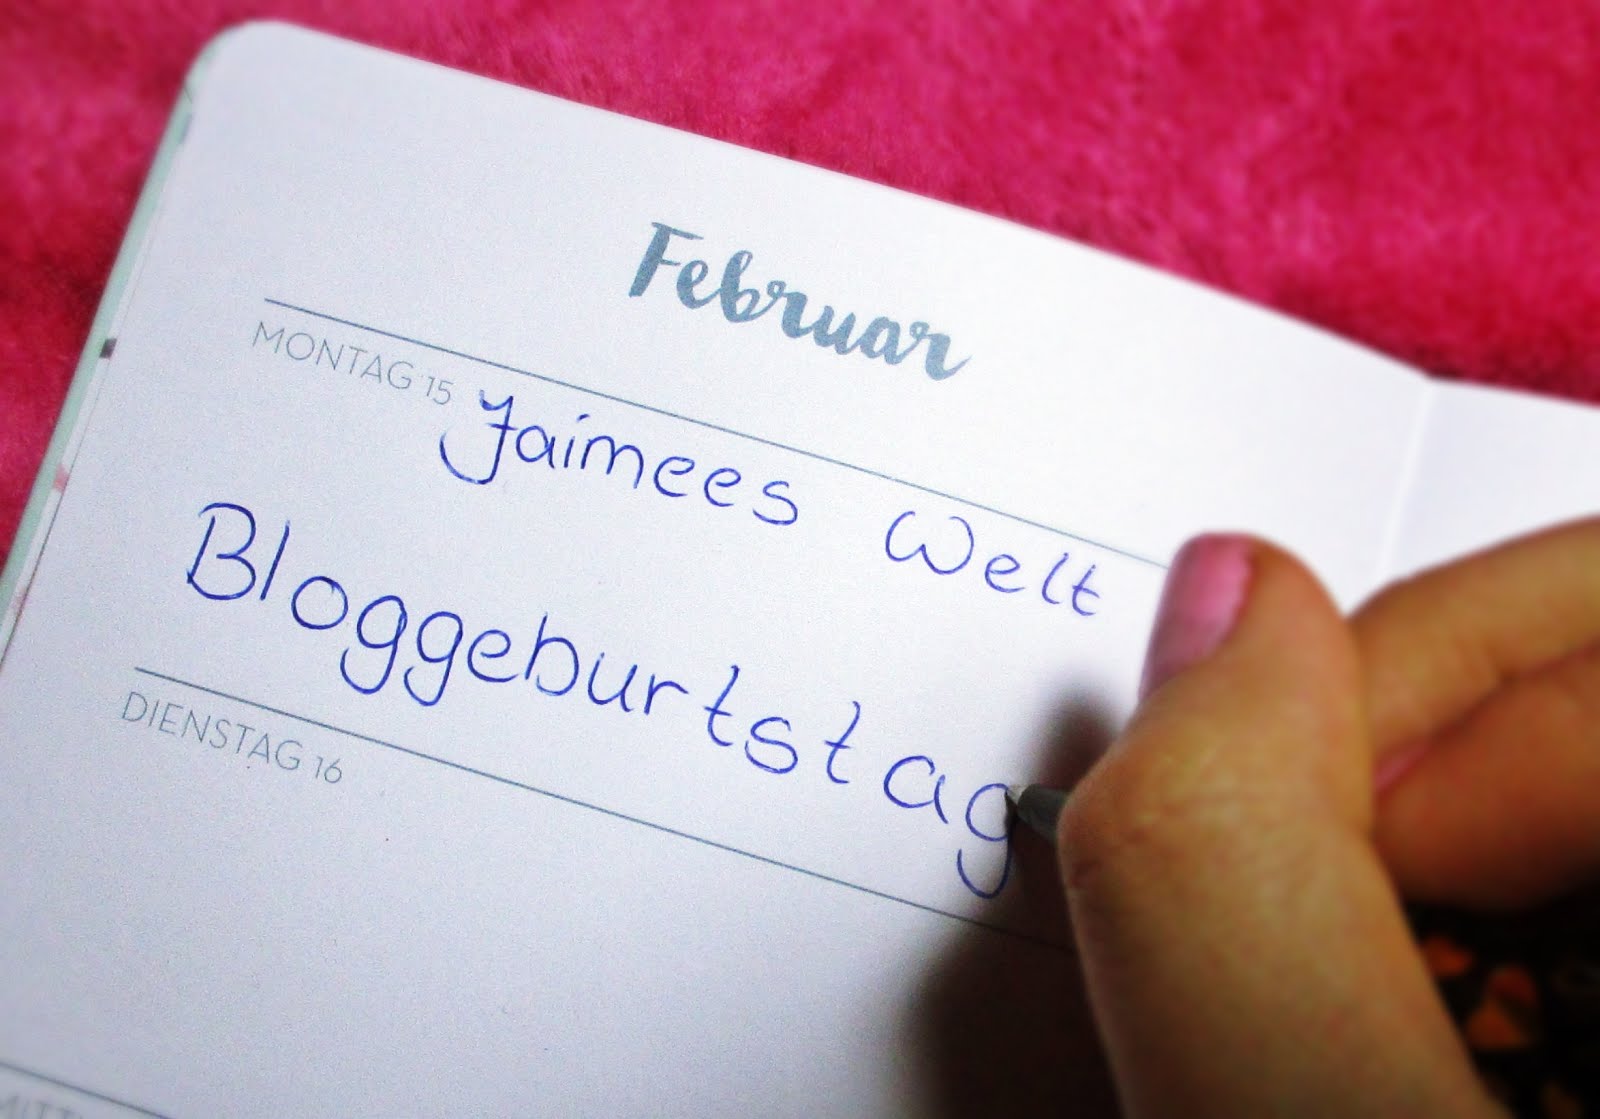 Februar
MONTAG 15 Jaimees Welt
Bloggeburtstag
DIENSTAG 16